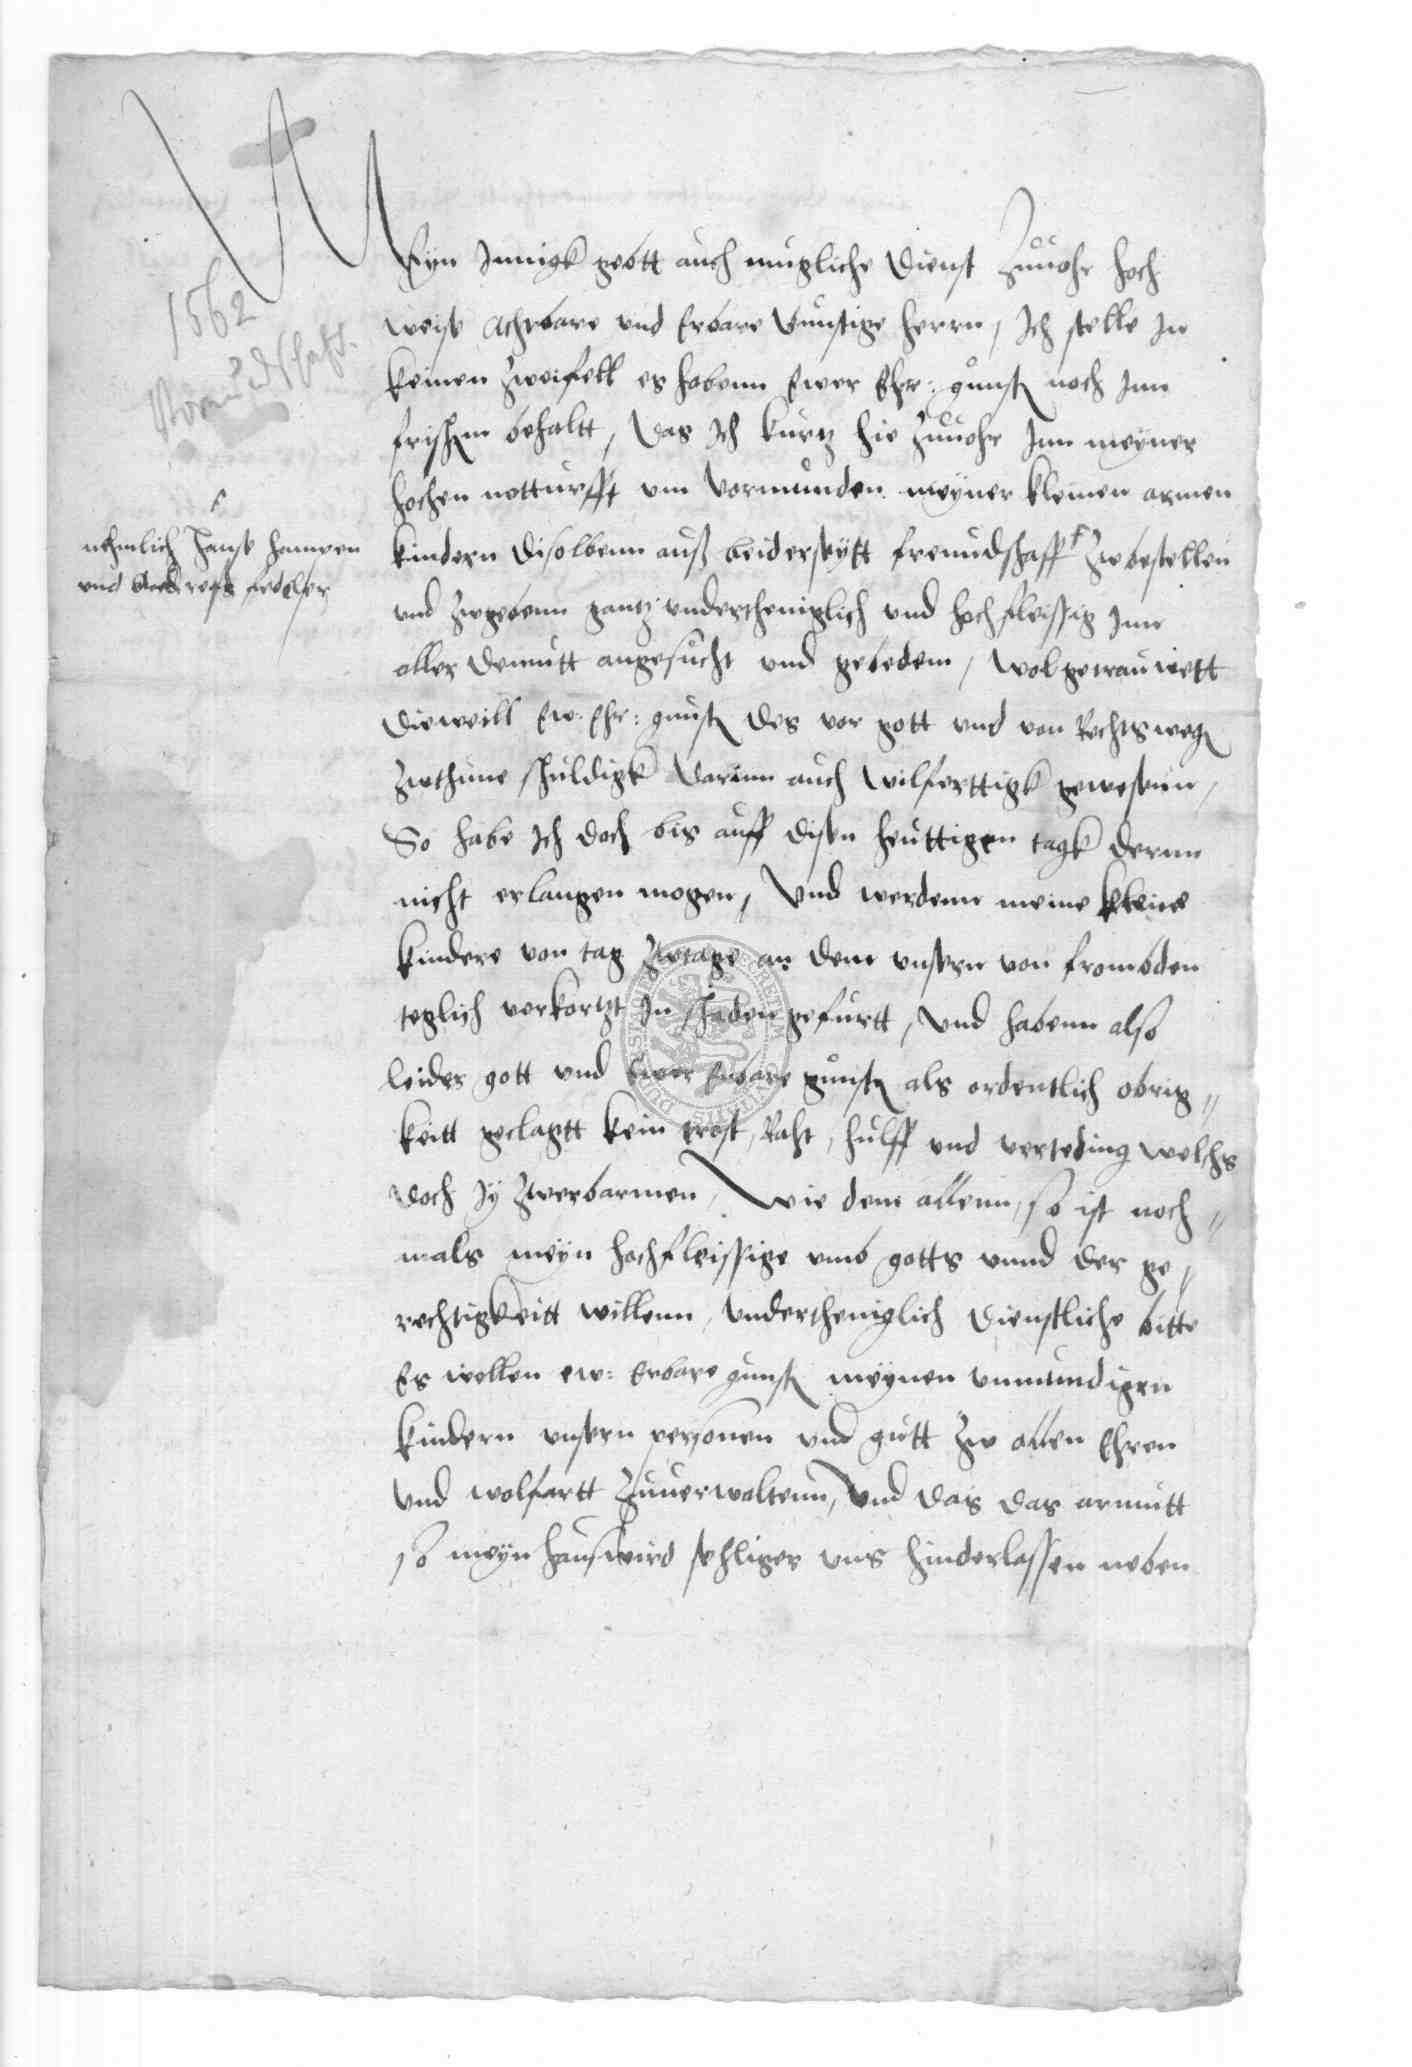 Meyn Innigk gebett auch mugliche dienst Zuuohr hoch
weise Achtbare und Erbare gunstige herrn, Ich stelle In
keinen Zweifell es habenn Ewer Ehr: gunst noch Inn
frischem behaltt, das Ich kurtz hie Zuuohr Inn meyner
hochen notturfft um Vormunden meyner kleinen armen
kindern diselbenn auß beiderseytt freundschafft Zwbestellen
nehmlich Hanse Hampen
und Andreas
und Zwgebenn gantz undertheniglich und hochfleissig Inn
aller demutt angesucht und gebedenn, Wol getrauwett
dieweill Ew: Ehr: gunst des vor gott und von Rechtswegen
Zwthune schuldigk darinn auch wilferttigk gewesenn,
So habe Ich doch bis auff disen heuttigen tagk derenn
nicht erlangen mogen, Und werdenn meine kleine
kindere von tag Zwtage an dem unsern von frombden
teglich vorkortzt In schaden gefurtt, Und habenn also
leider gott und Ewer Erbare gunst als ordentlich obrig"
keitt geclagtt kein trost, Raht, hulff und verteding welchs
doch Jy Zwerbarmen, Wie dem allenn, so ist noch"
mals meyn hochfleissige umb gotts unnd der ge"
rechtigkeitt willenn, underthenigligh dienstliche bitte
Es wollen ew: Erbare gunst meynen unmundigen
kindern unsern personen und gutt Zw allen Ehren
und wolfartt Zuuerwaltenn, Und das das armutt
so meyn hauswird sehliger uns hinderlassen neben
1562
Vormundschaft.